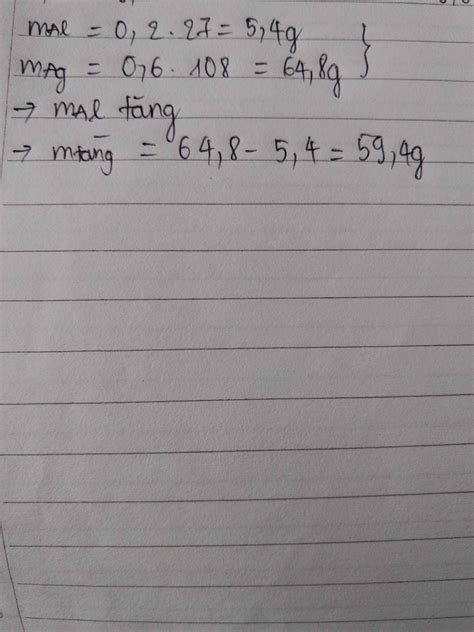 mAl = 0,2.27 = 5,4g
mAg = 0,6.108 = 64,8g
→ mAl tăng
→ mtăng = 64,8 - 5,4 = 59,4g